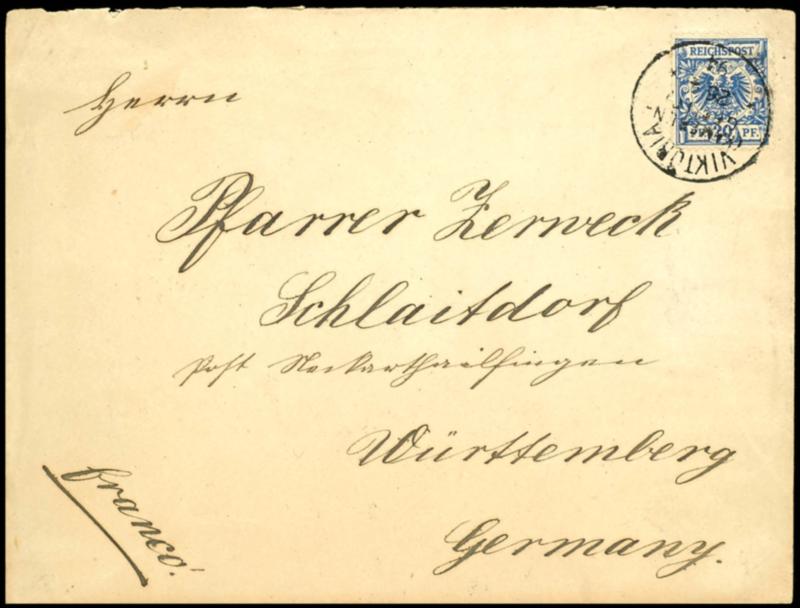 REICHSPOST
20 PF.
VIKTORIA
93
Herrn
Pfarrer Zerweck
Schlaitdorf
Post Neckarthailfingen
Württemberg
Germany.
franco!